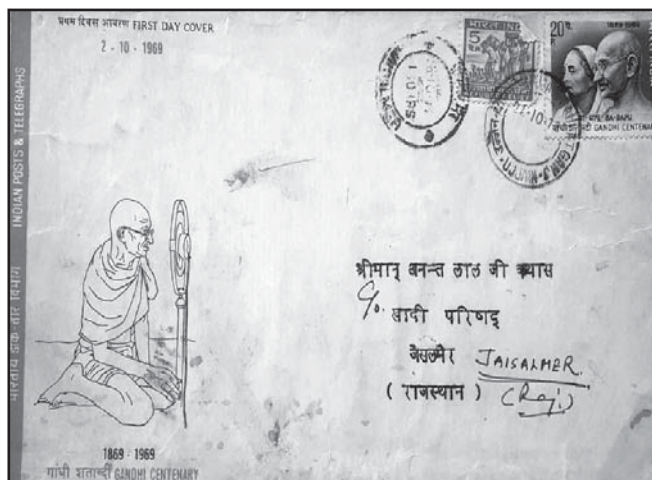 प्रथम दिवस आवरण FIRST DAY COVER
2-10-1969
INDIAN POSTS & TELEGRAPHS
भारतीय डाक-तार विभाग
भारत IND
5
20 प.
1869-1969
BA-BAPU
GANDHI CENTENARY
श्रीमान् अनन्त लाल जी व्यास
C/o. खादी परिषद्
जैसलमेर JAISALMER.
( राजस्थान ) (Raj.)
1869-1969
गांधी शताब्दी GANDHI CENTENARY